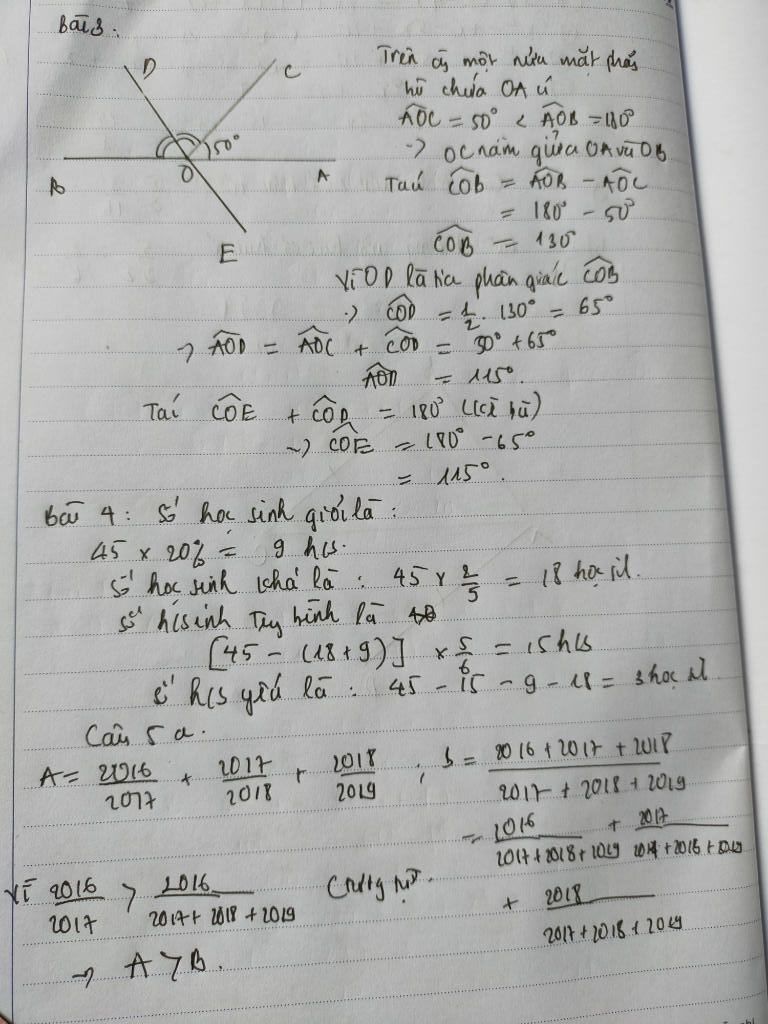 Bài 3:
D
C
50°
B
O
A
E
Trên cùng một nửa mặt phẳng
bờ chứa OA có
\widehat{AOC} = 50° < \widehat{AOB} = 180°
→ OC nằm giữa OA và OB
Ta có \widehat{COB} = \widehat{AOB} - \widehat{AOC}
= 180° - 50°
\widehat{COB} = 130°
Vì OD là tia phân giác \widehat{COB}
→ \widehat{COD} = \frac{1}{2} . 130° = 65°
→ \widehat{AOD} = \widehat{AOC} + \widehat{COD} = 50° + 65°
\widehat{AOD} = 115°.
Ta có \widehat{COE} + \widehat{COD} = 180° (kề bù)
→ \widehat{COE} = 180° - 65°
= 115°.
Bài 4: Số học sinh giỏi là:
45 x 20% = 9 hs.
Số học sinh khá là: 45 x \frac{2}{5} = 18 học sinh.
Số h/sinh Trg bình là
[45 - (18+9)] x \frac{5}{6} = 15 hs
Số hs yếu là: 45 - 15 - 9 - 18 = 3 học sinh
Câu 5 a.
A = \frac{2016}{2017} + \frac{2017}{2018} + \frac{2018}{2019} ; B = \frac{2016 + 2017 + 2018}{2017 + 2018 + 2019}
= \frac{2016}{2017+2018+2019} + \frac{2017}{2017+2018+2019}
+ \frac{2018}{2017+2018+2019}
Vì \frac{2016}{2017} > \frac{2016}{2017+2018+2019} Tương tự.
→ A > B.